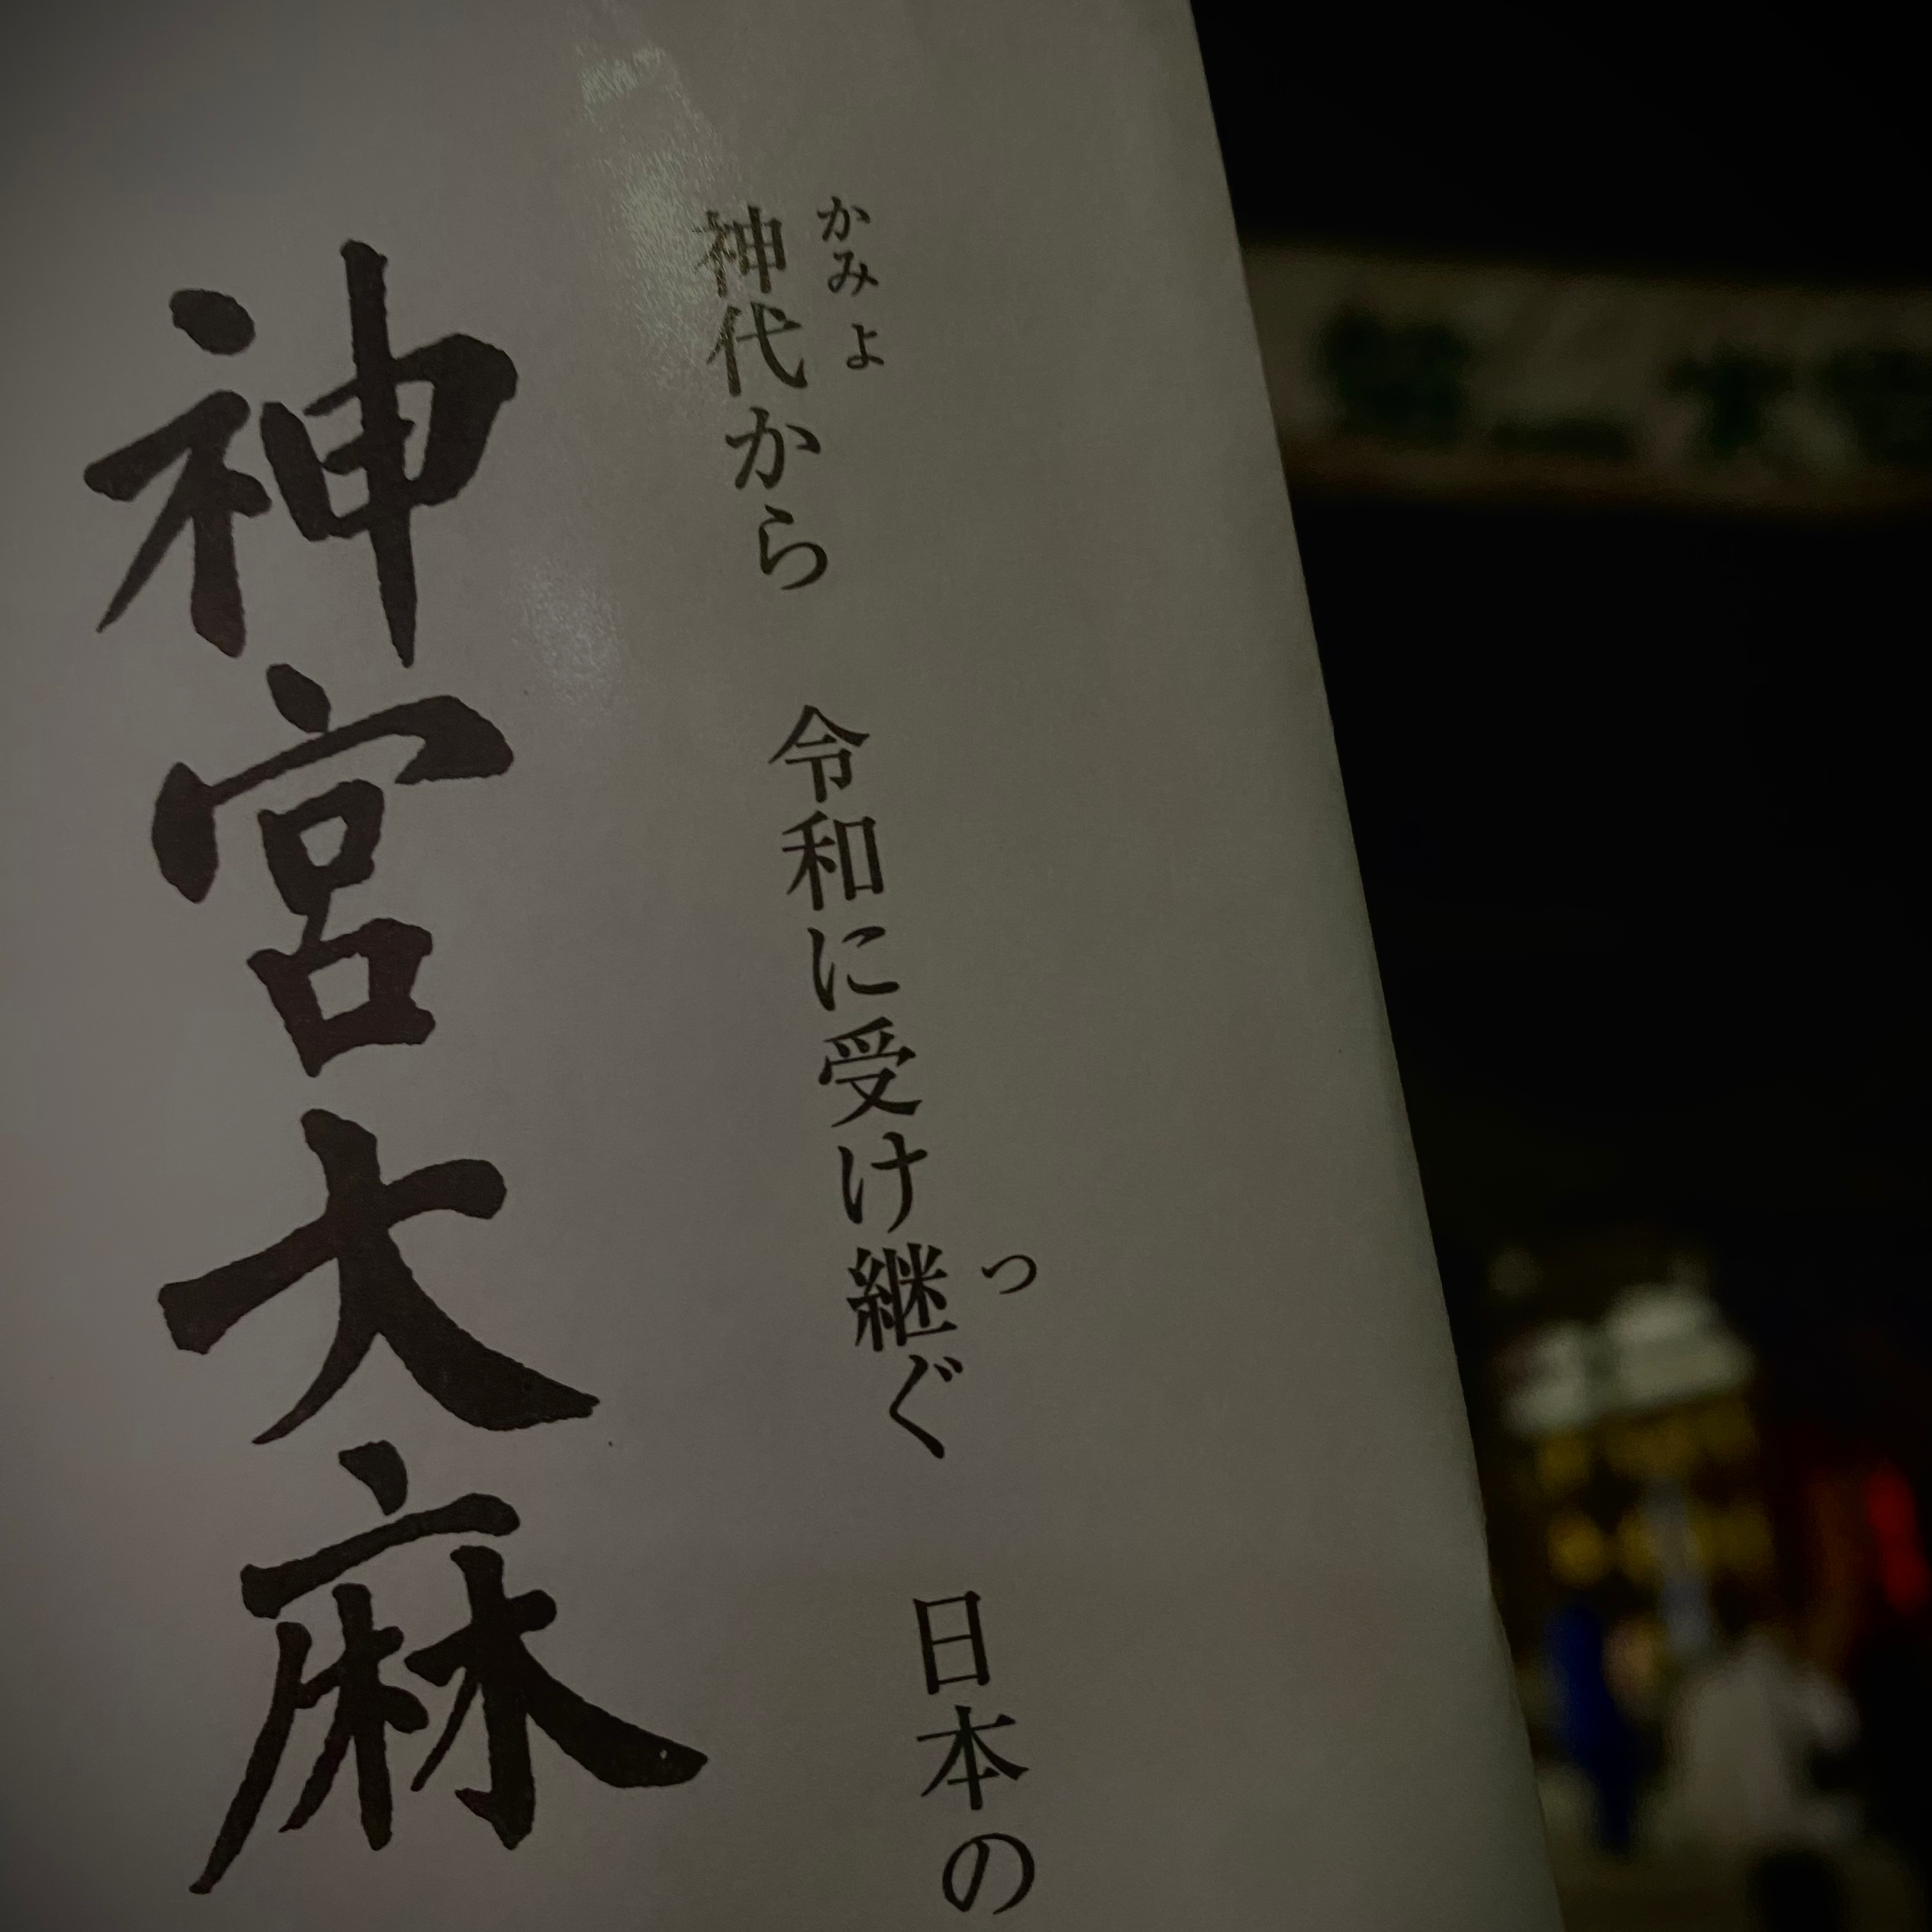 かみよ
神代から 令和に受け継ぐ 日本の
つ
神宮大麻